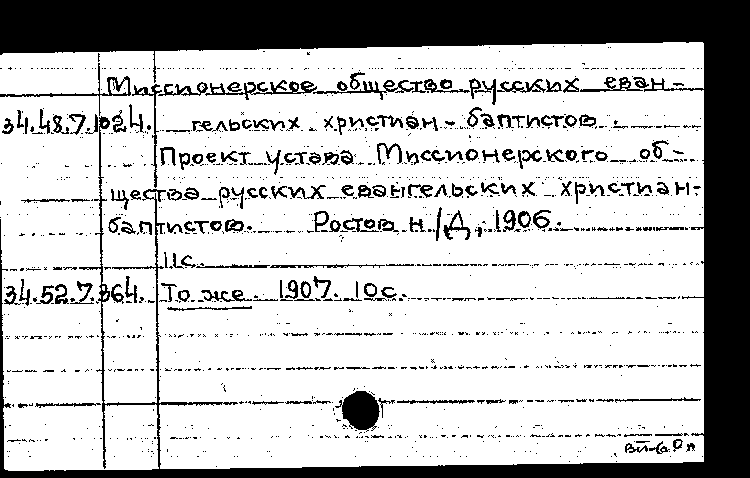 Миссионерское общество русских еван-
34.48.7.1024. гельских христиан-баптистов.
Проект устава Миссионерского об-
щества русских евангельских христиан-
баптистов. Ростов н/Д, 1906.
11с.
34.52.7.364. То же. 1907. 10с.